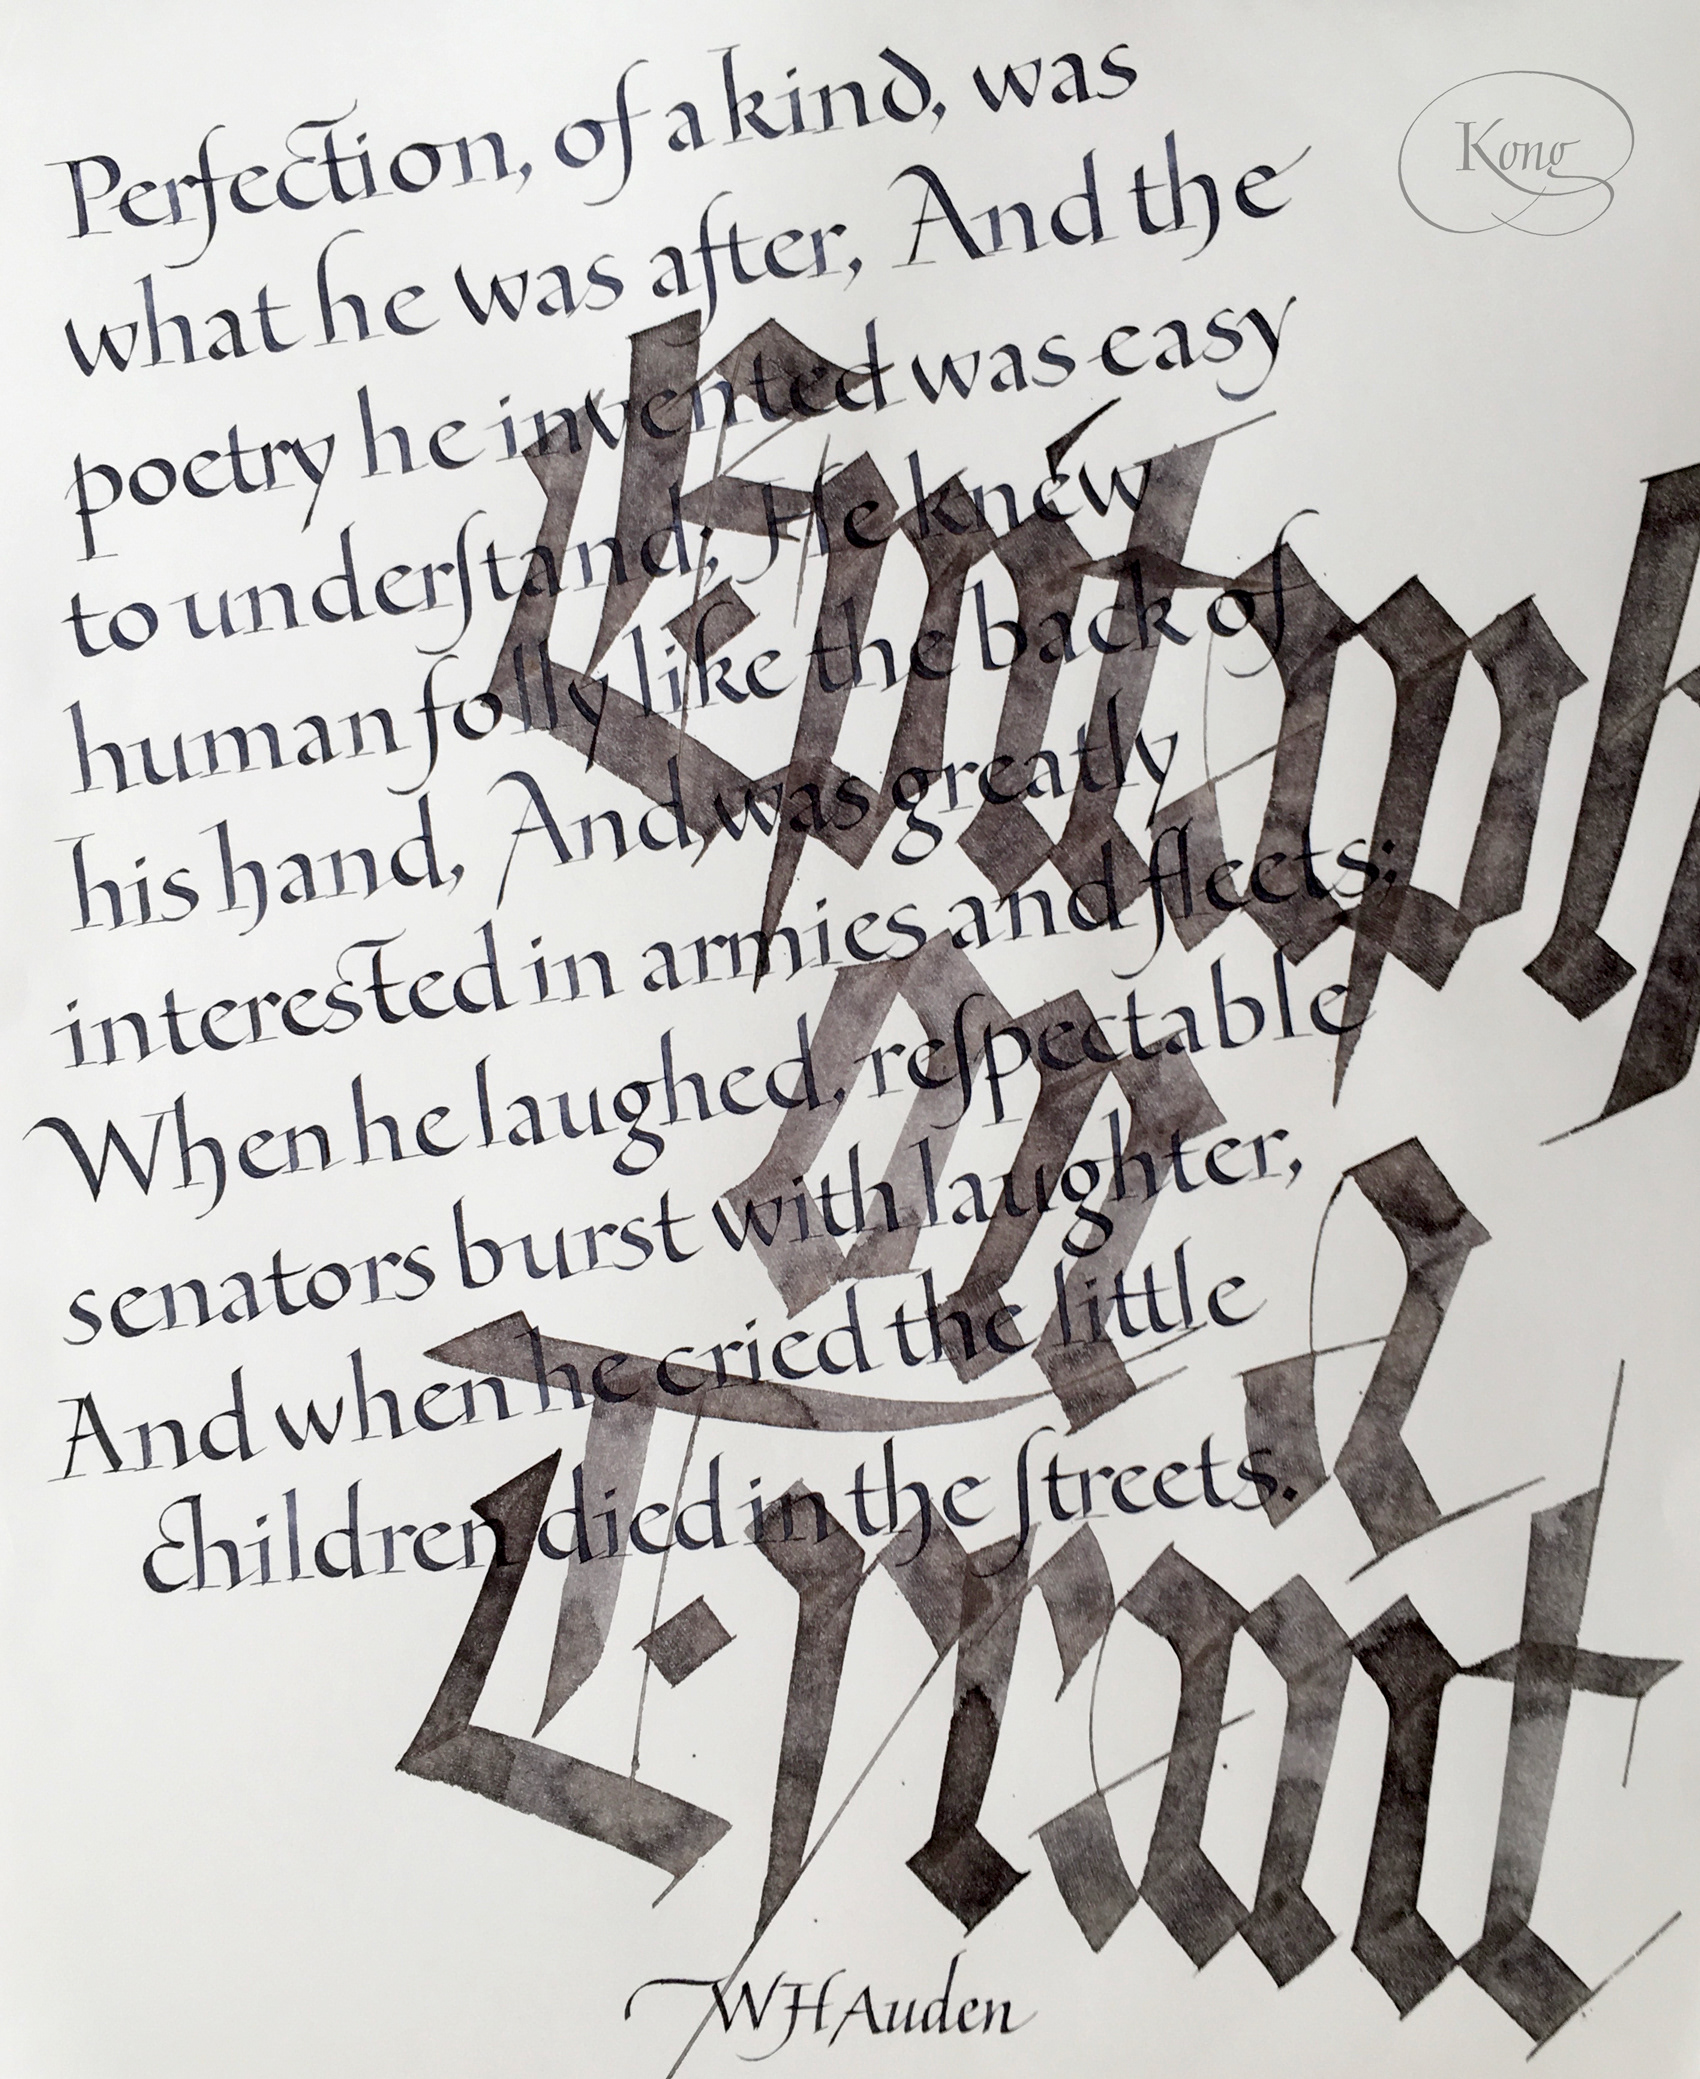 Perfection, of a kind, was
what he was after, And the
poetry he invented was easy
to underſtand; He knew
human folly like the back of
his hand, And was greatly
interested in armies and fleets;
When he laughed, reſpectable
senators burst with laughter,
And when he cried the little
children died in the ſtreets.
Epitaph
on a
Tyrant
W H Auden
Kong